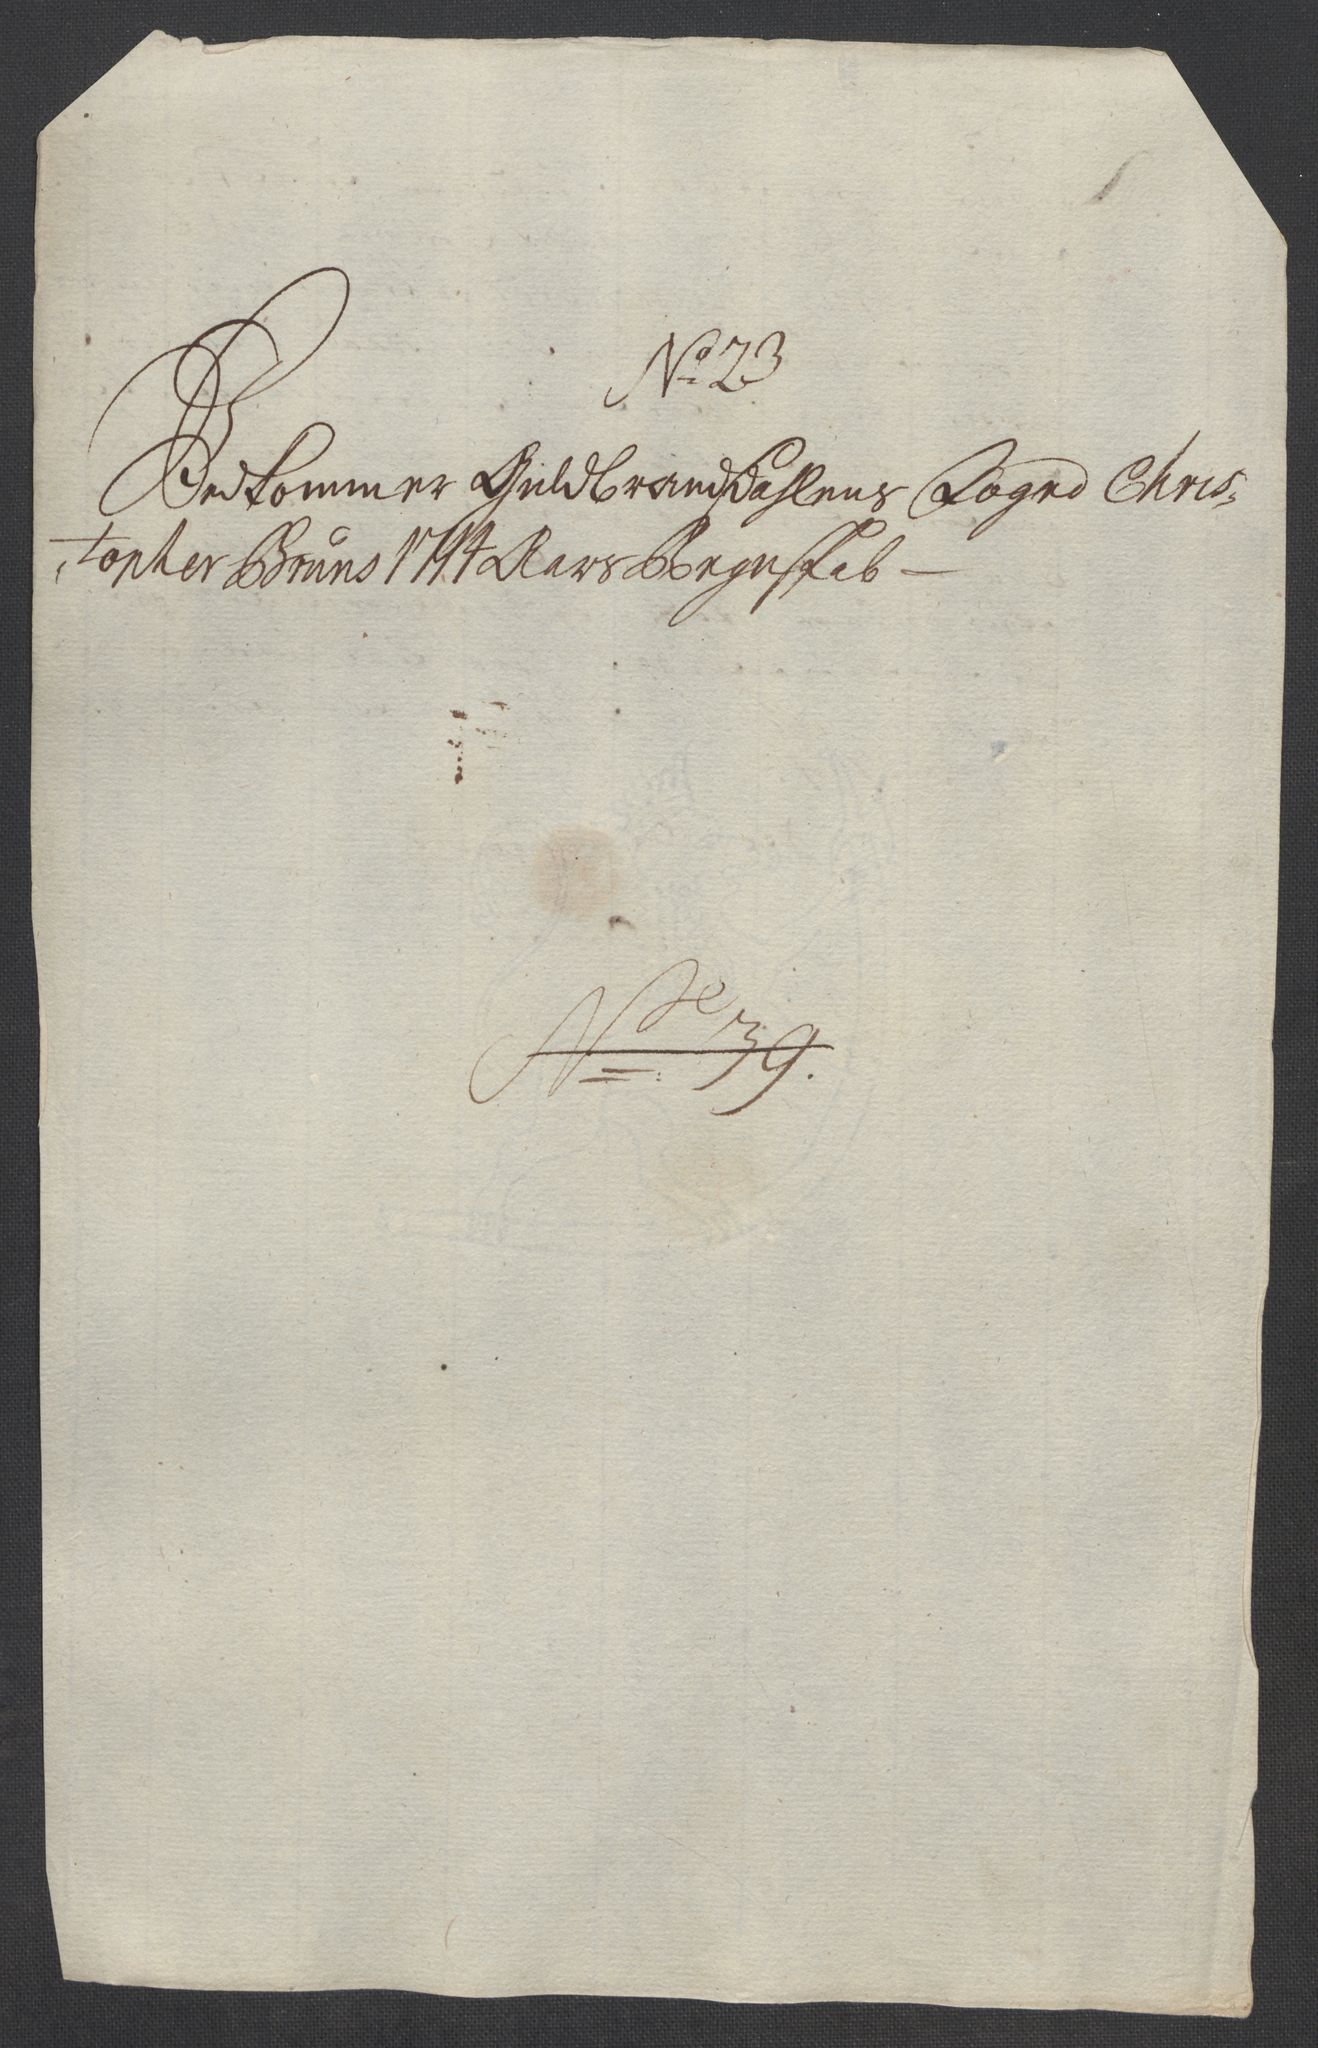 No 23
Vedkommer Guldbrandsdahlens Foged Chris-
topher Bruns 1714 Aars Regnskab —
No 39.